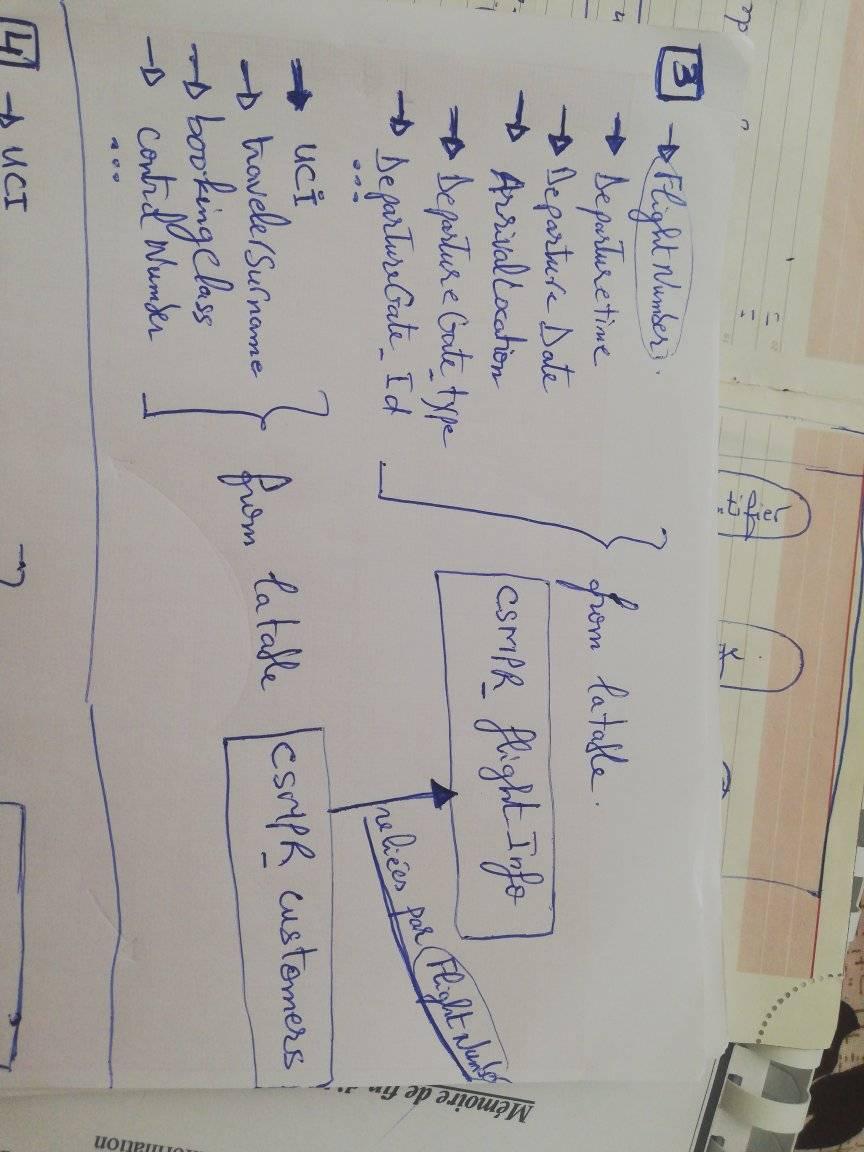 3
→ FlightNumber.
→ Departuretime
→ Departure Date
→ ArrivalLocation
→ DepartureGate_type
→ DepartureGate_Id
...
from la table.
CSMPR_ flightInfo
reliées par FlightNumber
→ UCI
→ travelerSurname
→ bookingClass
→ control Number
...
from la table
CSMPR_ customers
4
→ UCI
Mémoire de fin